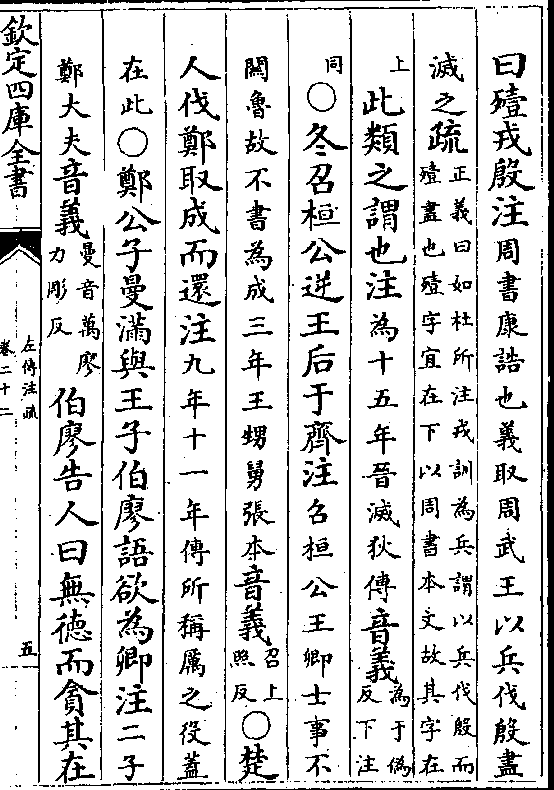 曰殪戎殷注周書康誥也義取周武王以兵伐殷盡
滅之疏正義曰如杜所注戎訓為兵謂以兵伐殷而
殪盡也殪字宜在下以周書本文故其字在
上此類之謂也注為十五年晉滅狄傳音義為于偽
反下注
同○冬召桓公逆王后于齊注召桓公王卿士事不
關魯故不書為成三年王甥舅張本音義召上
照反○楚
人伐鄭取成而還注九年十一年傳所稱厲之役蓋
在此○鄭公子曼滿與王子伯廖語欲為卿注二子
鄭大夫音義曼音萬廖
力彫反伯廖告人曰無德而貪其在
欽定四庫全書
左傳注疏
卷二十二
五